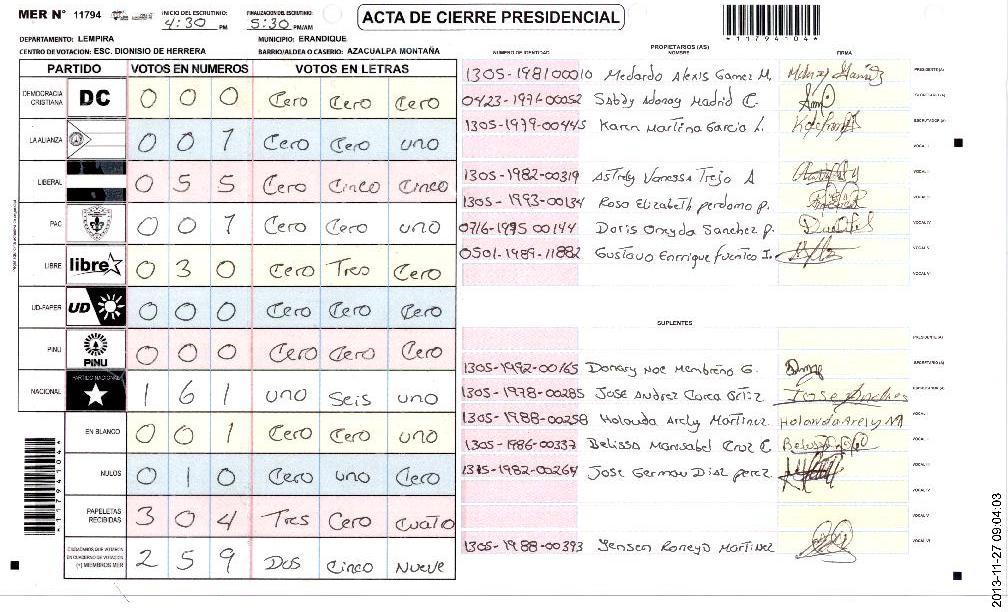 MER N° 11794 INICIO DEL ESCRUTINIO: 4:30 PM FINALIZACION DEL ESCRUTINIO: 5:30 PM/AM
ACTA DE CIERRE PRESIDENCIAL
*11794104*
DEPARTAMENTO: LEMPIRA MUNICIPIO: ERANDIQUE
CENTRO DE VOTACION: ESC. DIONISIO DE HERRERA BARRIO/ALDEA O CASERIO: AZACUALPA MONTAÑA
PARTIDO VOTOS EN NUMEROS VOTOS EN LETRAS
DEMOCRACIA CRISTIANA DC 0 0 0 Cero Cero Cero
LA ALIANZA 0 0 1 Cero Cero uno
LIBERAL 0 5 5 Cero Cinco Cinco
PAC 0 0 1 Cero Cero uno
LIBRE libre 0 3 0 Cero Tres Cero
UD-FAPER UD 0 0 0 Cero Cero Cero
PINU PINU 0 0 0 Cero Cero Cero
NACIONAL PARTIDO NACIONAL 1 6 1 uno Seis uno
EN BLANCO 0 0 1 Cero Cero uno
NULOS 0 1 0 Cero uno Cero
PAPELETAS RECIBIDAS 3 0 4 Tres Cero Cuatro
CIUDADANOS QUE VOTARON EN CUADERNO DE VOTACION (+) MIEMBROS MER 2 5 9 Dos Cinco Nueve
*11794104*
PROPIETARIOS (AS)
NUMERO DE IDENTIDAD NOMBRE FIRMA
1305-1981 00010 Medardo Alexis Gamez M. PRESIDENTE (A)
0423-1976-00052 Sabdy Adonay Madrid C. SECRETARIO (A)
1305-1979-00445 Karen Martina Garcia L. ESCRUTADOR (A)
VOCAL I
1305-1982-00319 Astrely Vanessa Trejo A VOCAL II
1305-1993-00134 Rosa Elizabeth perdomo p. VOCAL III
0716-1995 00144 Doris Oneyda Sanchez p. VOCAL IV
0501-1989-11882 Gustavo Enrrique fuentes I. VOCAL V
VOCAL VI
SUPLENTES
PRESIDENTE (A)
1305-1992-00165 Donary Noe Membreño G. SECRETARIO (A)
1305-1978-00285 Jose Andrez Lorca Ortiz Jose Andres ESCRUTADOR (A)
1305-1988-00258 Holanda Arely Martinez Holanda Arely M VOCAL I
1305-1986-00337 Belissa Marisabel Cruz C. VOCAL II
1305-1982-00264 Jose German Diaz perez VOCAL III
VOCAL IV
VOCAL V
1305-1988-00393 Yensen Roneyd Martinez VOCAL VI
2013-11-27 09:04:03